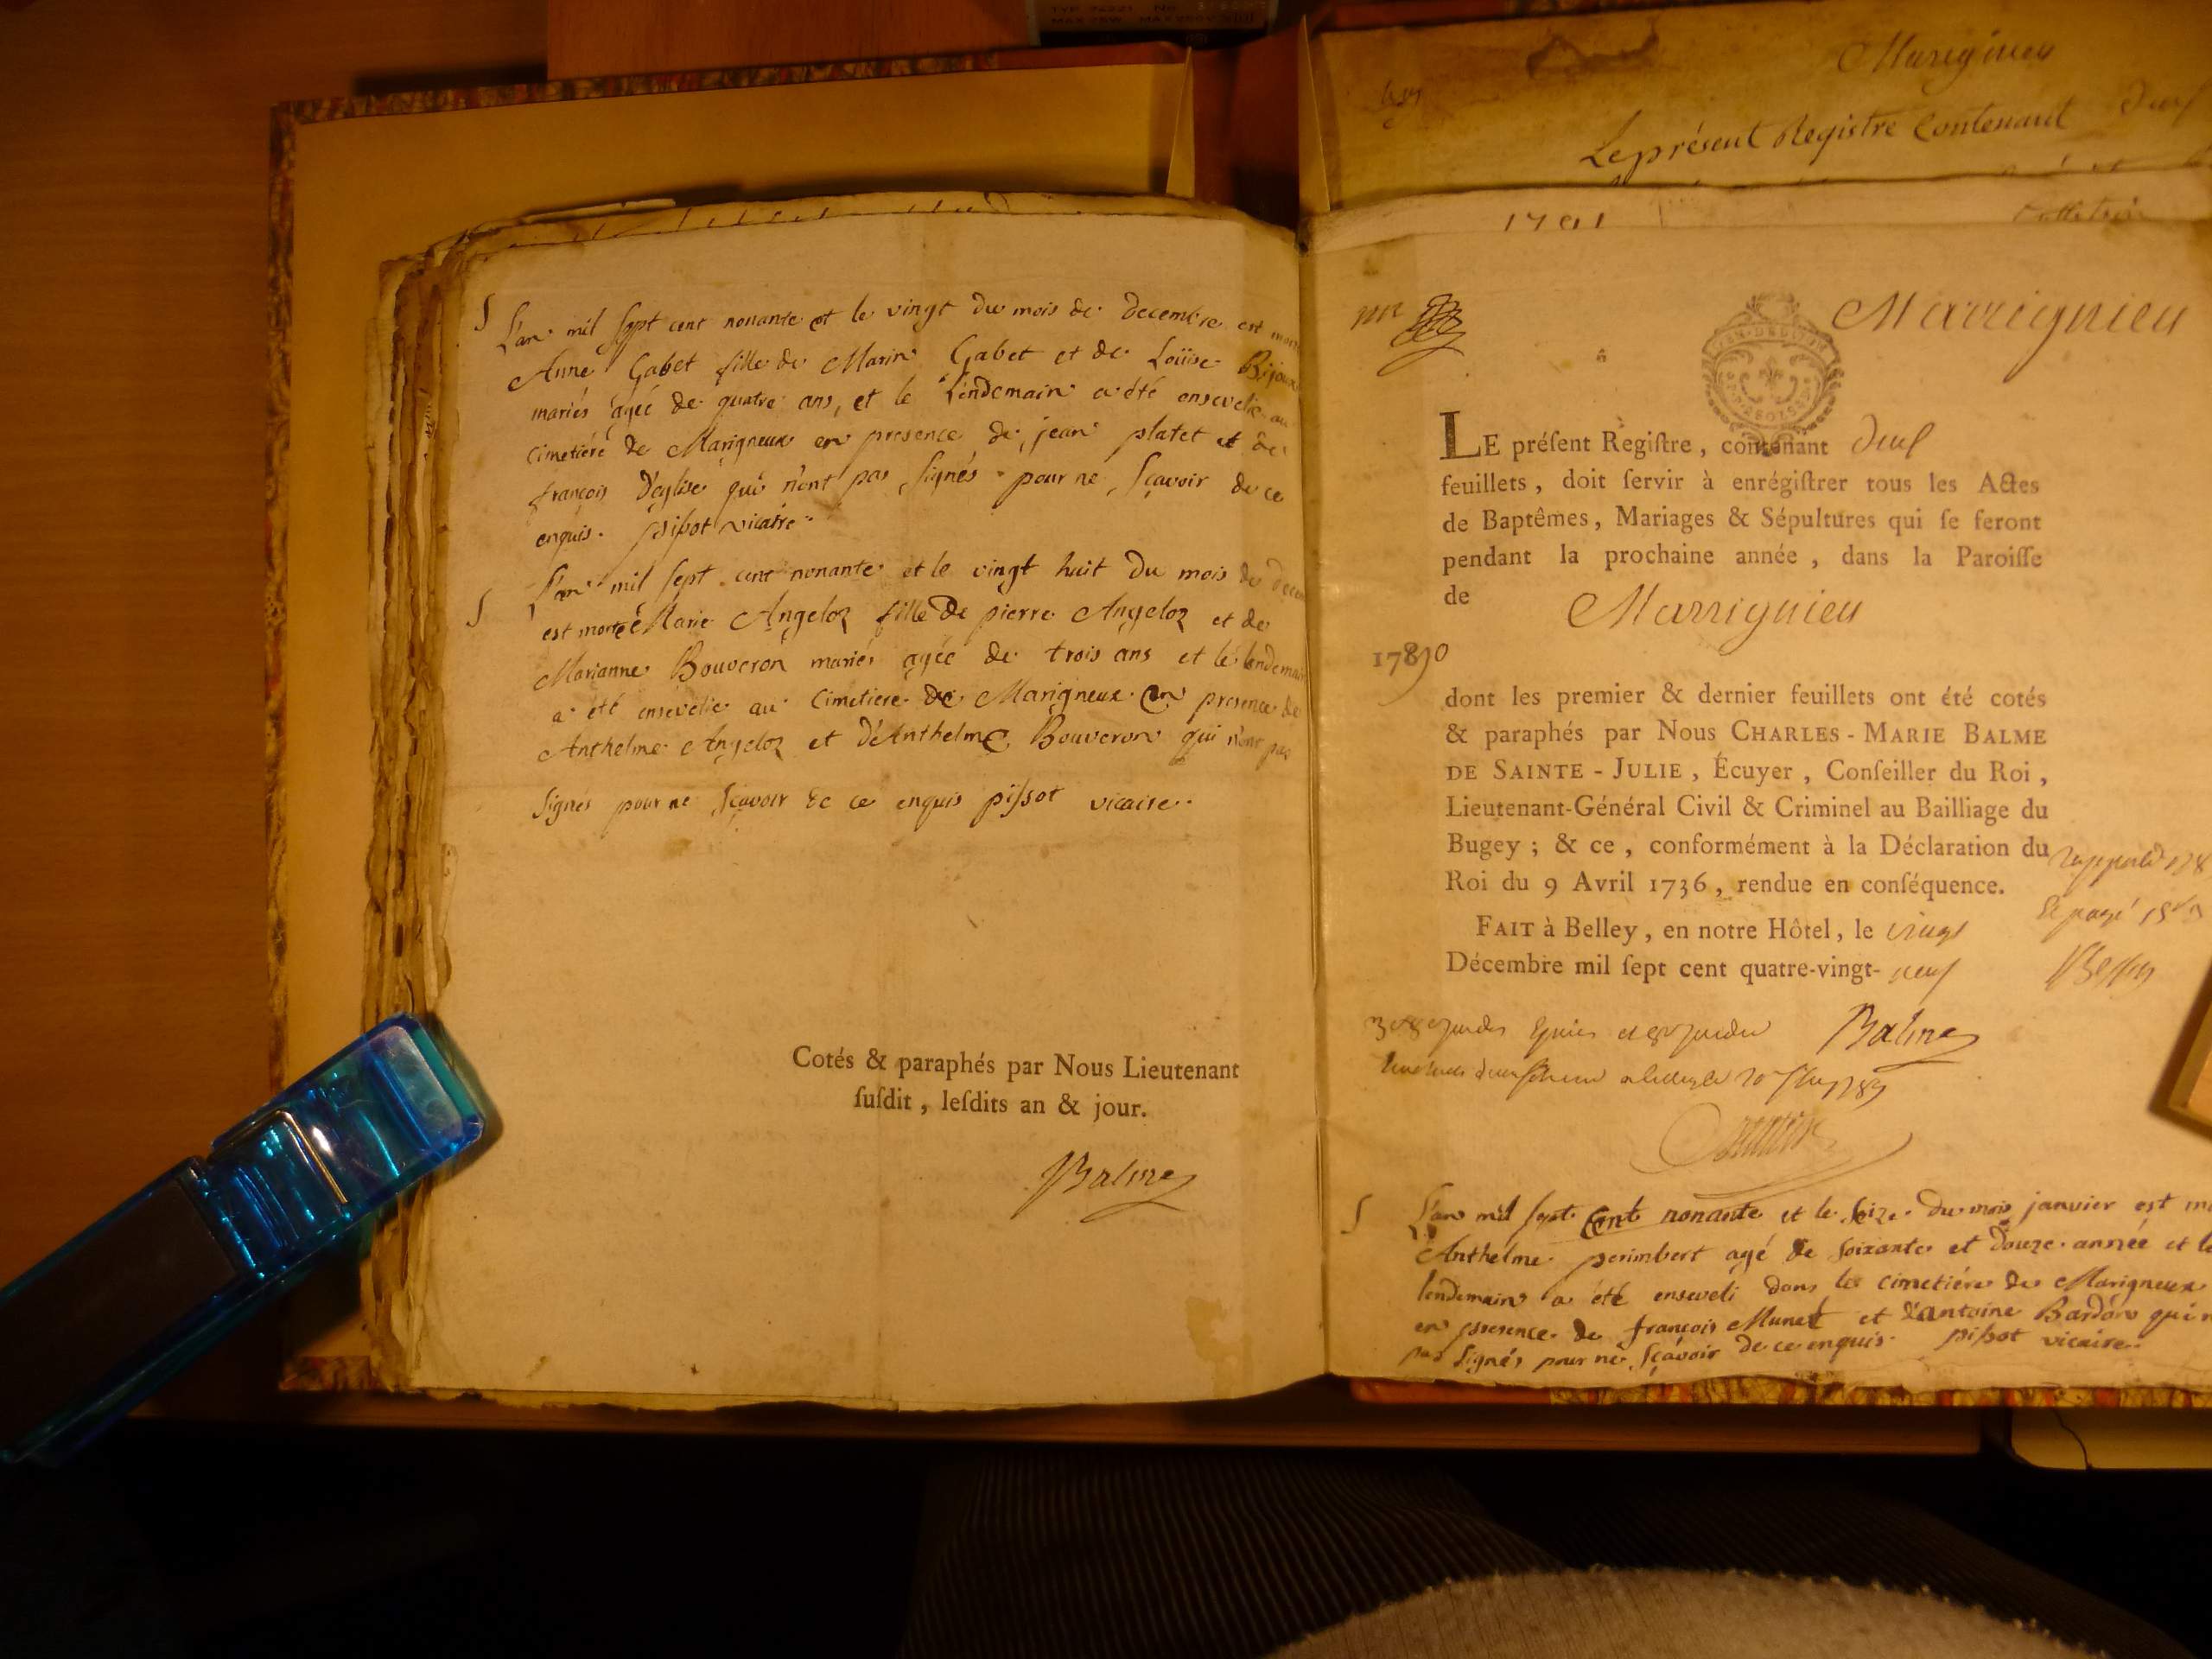 S L'an mil sept cent nonante et le vingt du mois de decembre est
Anne Gabet fille de Marin Gabet et de Loüise Bijoux
mariés agée de quatre ans, et le lendemain a été ensevelie au
cimetiére de Marigneux en presence de jean platet et de
francois D'eglise qui n'ont pas signés pour ne sçavoir de ce
enquis. pissot vicaire
S L'an mil sept cent nonante et le vingt huit du mois de
est morte Marie Angeloz fille de pierre Angeloz et de
Marianne Bouveron mariés agée de trois ans et le lendemain
a été ensevelie au cimetiere de Marigneux en presence de
Anthelme Angeloz et d'Anthelme Bouveron qui n'ont pas
signés pour ne sçavoir de ce enquis pissot vicaire
Cotés & paraphés par Nous Lieutenant
susdit, lesdits an & jour.
Balme
Marignieu
Le présent Registre Contenant
1791
Marrignieu
LE présent Registre, contenant deux
feuillets, doit servir à enrégistrer tous les Actes
de Baptêmes, Mariages & Sépultures qui se feront
pendant la prochaine année, dans la Paroisse
de Marrignieu
1790
dont les premier & dernier feuillets ont été cotés
& paraphés par Nous CHARLES-MARIE BALME
DE SAINTE-JULIE, Écuyer, Conseiller du Roi,
Lieutenant-Général Civil & Criminel au Bailliage du
Bugey; & ce, conformément à la Déclaration du
Roi du 9 Avril 1736, rendue en conséquence.
FAIT à Belley, en notre Hôtel, le vingt
Décembre mil sept cent quatre-vingt-neuf
Balme
S L'an mil sept cent nonante et le seize du mois janvier est
Anthelme perimbert agé de soixante et douze année et le
lendemain a été enseveli dans le cimetiére de Marigneux
en presence de francois Munet et d'antoine Bardon qui
pas signés pour ne sçavoir de ce enquis. pissot vicaire